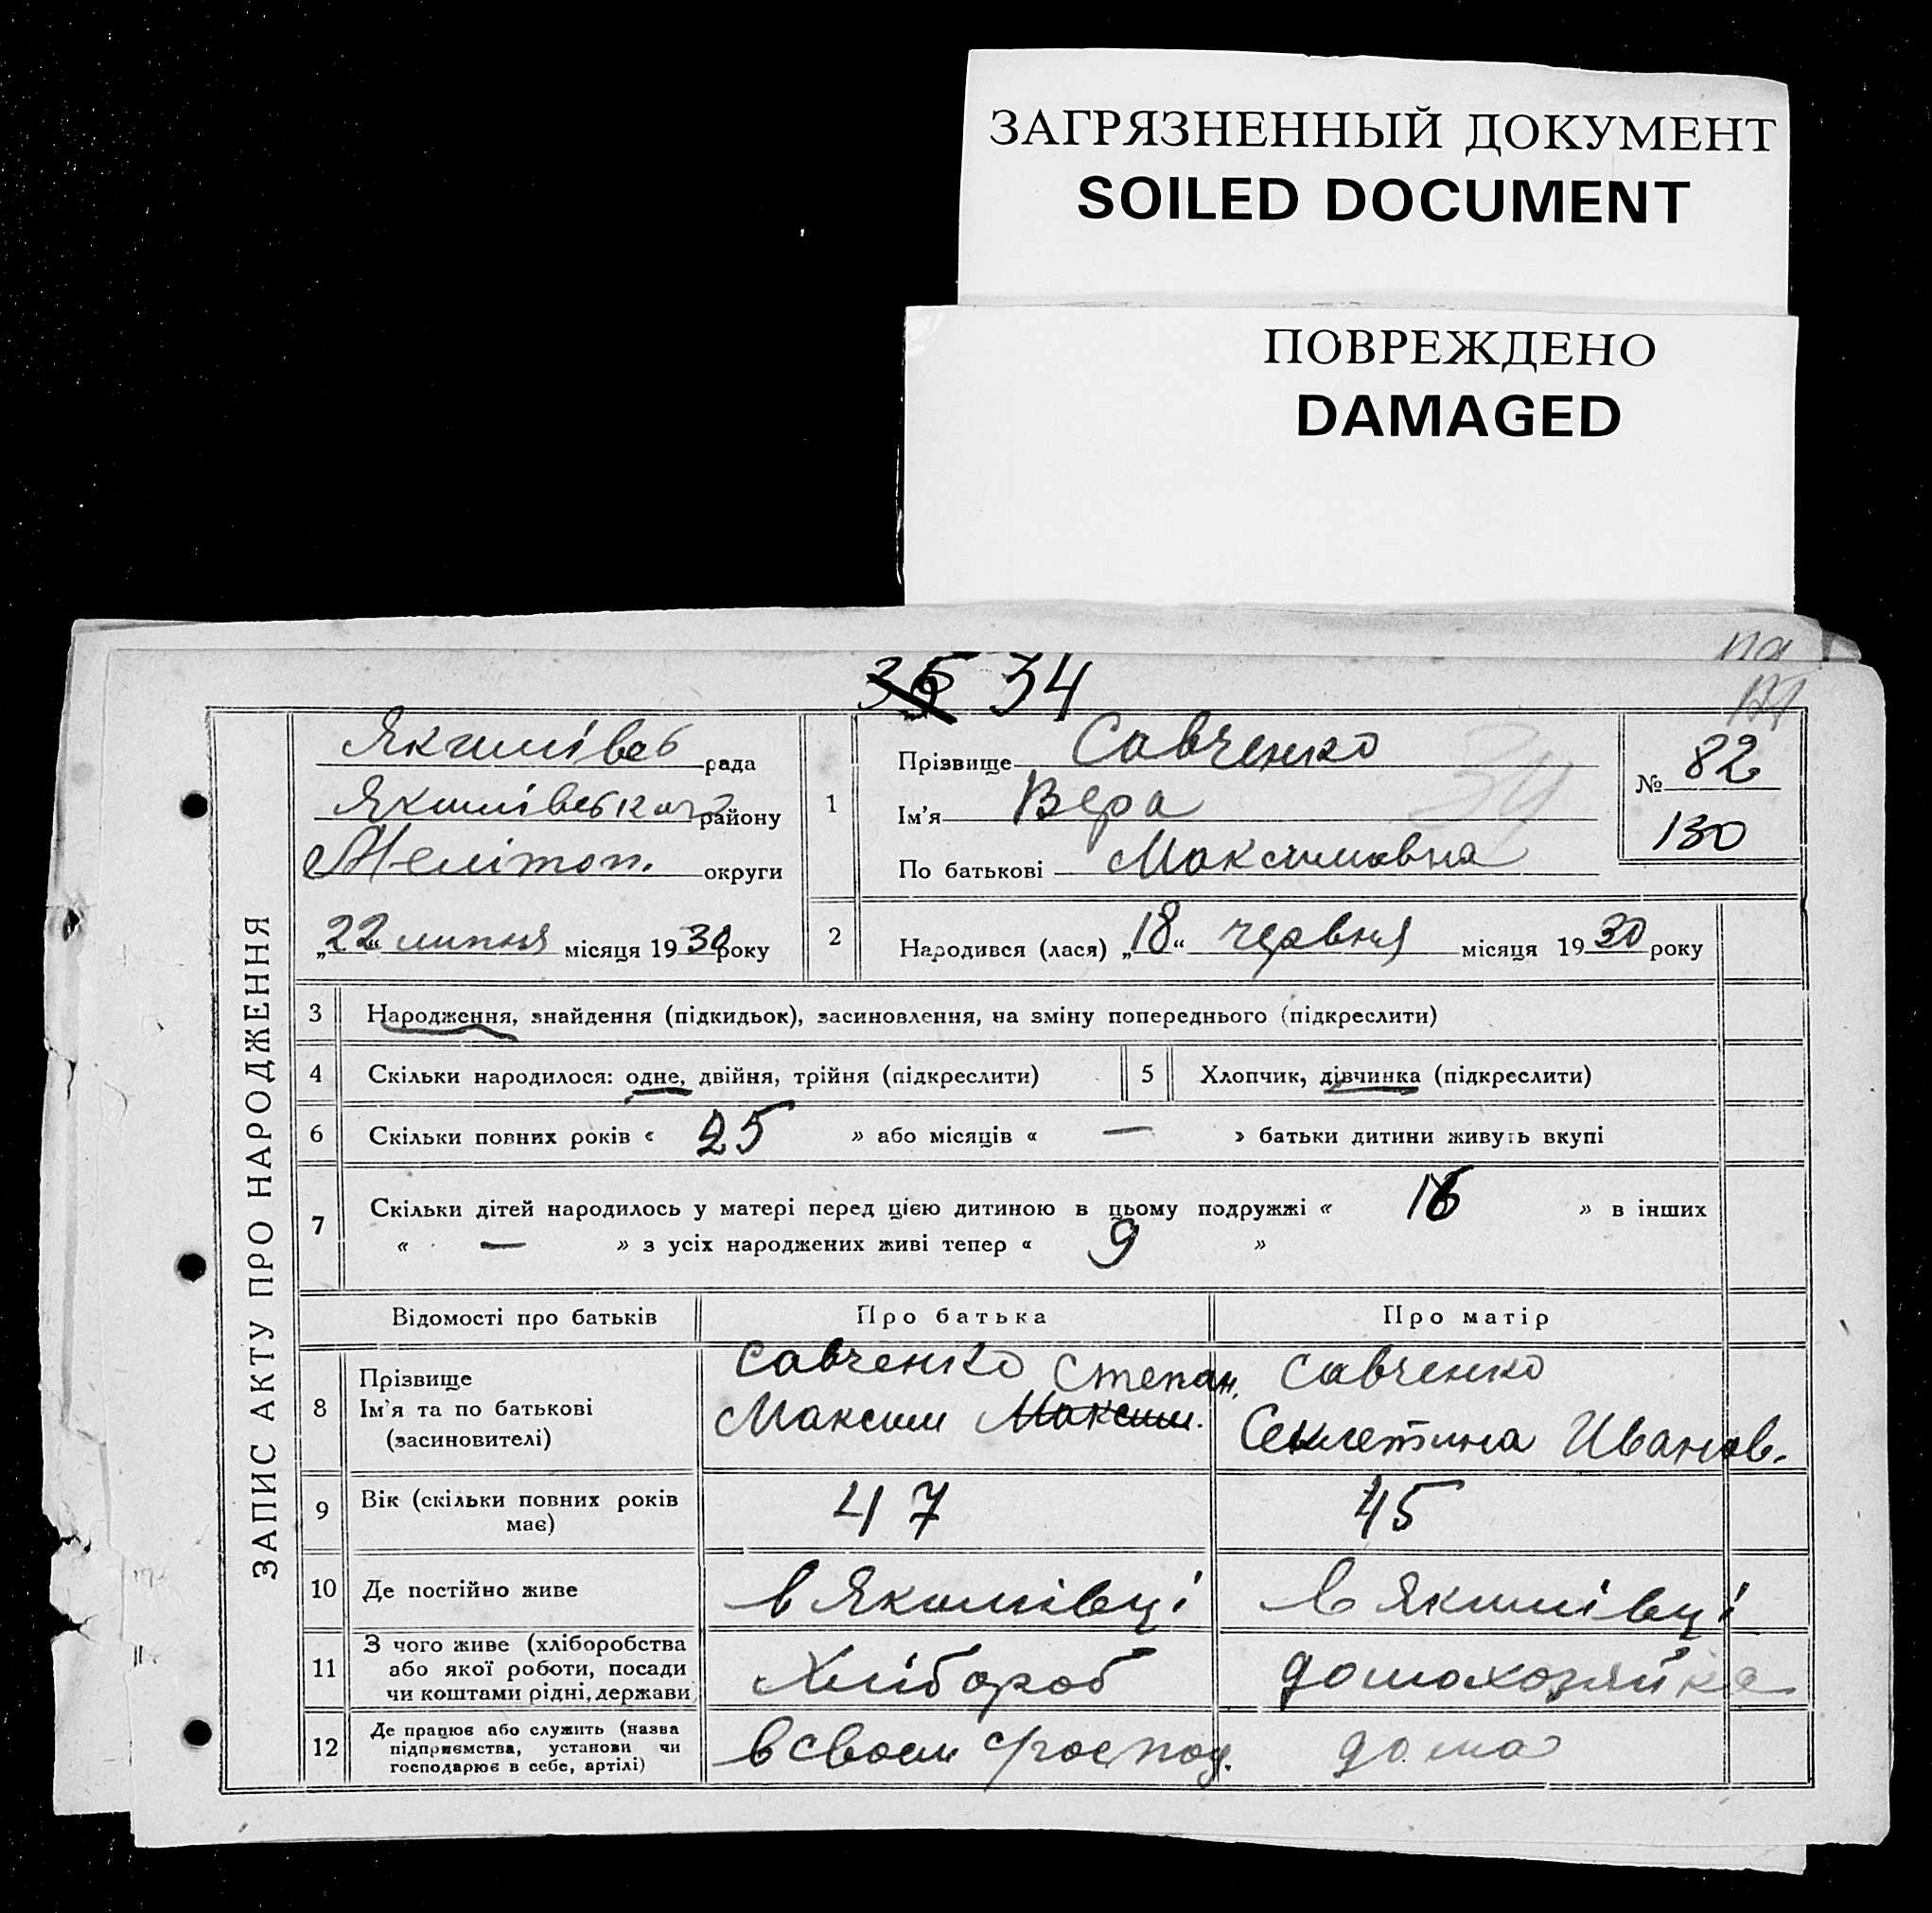 ЗАГРЯЗНЕННЫЙ ДОКУМЕНТ
SOILED DOCUMENT
ПОВРЕЖДЕНО
DAMAGED
34
ЗАПИС АКТУ ПРО НАРОДЖЕННЯ
Якимівсь рада
Якимівського району
Мелітоп. округи
„22“ липня місяця 1930 року
1
Прізвище Савченко
Ім'я Вера
По батькові Максимовна
№ 82
130
34
2
Народився (лася) „18“ червня місяця 1930 року
3 Народження, знайдення (підкидьок), засиновлення, на зміну попереднього (підкреслити)
4 Скільки народилося: одне, двійня, трійня (підкреслити)
5 Хлопчик, дівчинка (підкреслити)
6 Скільки повних років « 25 » або місяців « — » батьки дитини живуть вкупі
7 Скільки дітей народилось у матері перед цією дитиною в цьому подружжі « 16 » в інших
« — » з усіх народжених живі тепер « 9 »
Відомості про батьків Про батька Про матір
8 Прізвище
Ім'я та по батькові
(засиновителі)
Савченко Степан.
Максим Максим.
Савченко
Секлетина Иванов.
9 Вік (скільки повних років
має)
47
45
10 Де постійно живе
в Якимівці
в Якимівці
11 З чого живе (хліборобства
або якої роботи, посади
чи коштами рідні, держави
Хлібороб
домохозяйка
12 Де працює або служить (назва
підприємства, установи чи
господарює в себе, артілі)
в своем господ.
дома